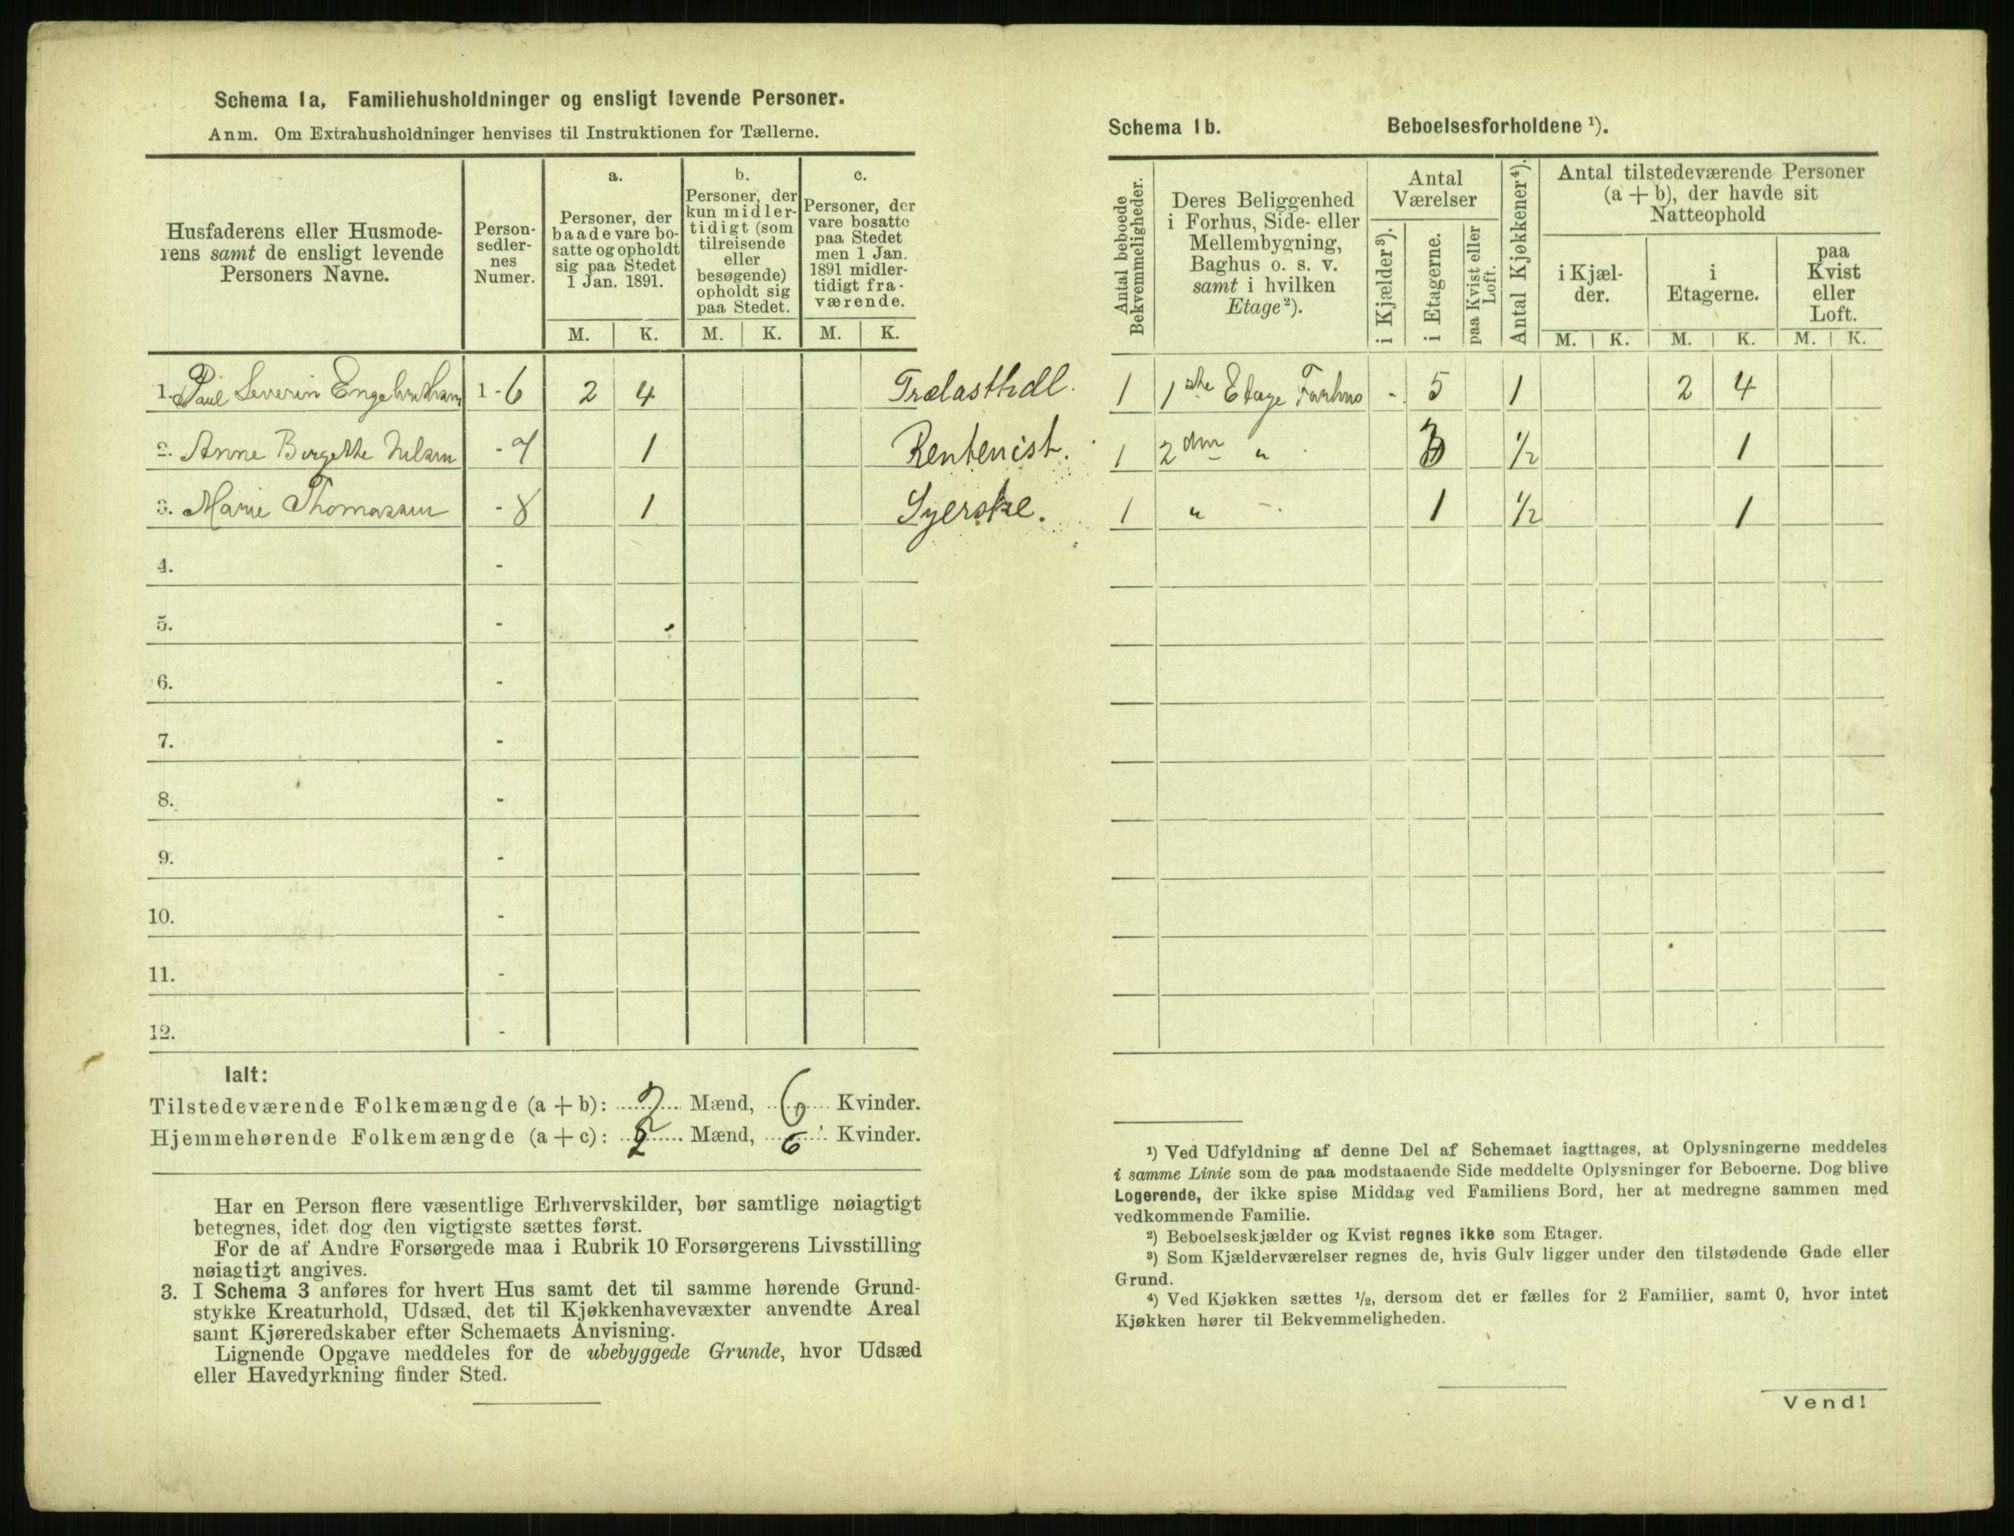 Schema 1a, Familiehusholdninger og ensligt levende Personer.
Anm. Om Extrahusholdninger henvises til Instruktionen for Tællerne.
Husfaderens eller Husmode-
rens samt de ensligt levende
Personers Navne.
Person-
sedler-
nes
Numer.
a.
Personer, der
baade vare bo-
satte og opholdt
sig paa Stedet
1 Jan. 1891.
b.
Personer, der
kun midler-
tidigt (som
tilreisende
eller
besøgende)
opholdt sig
paa Stedet.
c.
Personer, der
vare bosatte
paa Stedet
men 1 Jan.
1891 midler-
tidigt fra-
værende.
M. K. M. K. M. K.
1. Paul Severin 1 - 6 2 4 Trælasthdl.
2. Anne Birgitte Nilsen - 7 1 Rentenist.
3. Marie Thomassen - 8 1 Syerske.
4. -
5. -
6. -
7. -
8. -
9. -
10. -
11. -
12. -
Ialt:
Tilstedeværende Folkemængde (a + b): 2 Mænd, 6 Kvinder.
Hjemmehørende Folkemængde (a + c): 2 Mænd, 6 Kvinder.
Har en Person flere væsentlige Erhvervskilder, bør samtlige nøiagtigt
betegnes, idet dog den vigtigste sættes først.
For de af Andre Forsørgede maa i Rubrik 10 Forsørgerens Livsstilling
nøiagtigt angives.
3. I Schema 3 anføres for hvert Hus samt det til samme hørende Grund-
stykke Kreaturhold, Udsæd, det til Kjøkkenhavevæxter anvendte Areal
samt Kjøreredskaber efter Schemaets Anvisning.
Lignende Opgave meddeles for de ubebyggede Grunde, hvor Udsæd
eller Havedyrkning finder Sted.
Schema 1b. Beboelsesforholdene ¹).
Antal beboede
Bekvemmeligheder.
Deres Beliggenhed
i Forhus, Side- eller
Mellembygning,
Baghus o. s. v.
samt i hvilken
Etage²).
Antal
Værelser
i Kjælder³).
i Etagerne.
paa Kvist eller
Loft.
Antal Kjøkkener⁴).
Antal tilstedeværende Personer
(a + b), der havde sit
Natteophold
i Kjæl-
der.
i
Etagerne.
paa
Kvist
eller
Loft.
M. K. M. K. M. K.
1 1ste Etage Forhus - 5 1 2 4
1 2den " 3 1/2 1
1 " - 1 1/2 1
¹) Ved Udfyldning af denne Del af Schemaet iagttages, at Oplysningerne meddeles
i samme Linie som de paa modstaaende Side meddelte Oplysninger for Beboerne. Dog blive
Logerende, der ikke spise Middag ved Familiens Bord, her at medregne sammen med
vedkommende Familie.
²) Beboelseskjælder og Kvist regnes ikke som Etager.
³) Som Kjælderværelser regnes de, hvis Gulv ligger under den tilstødende Gade eller
Grund.
⁴) Ved Kjøkken sættes ½, dersom det er fælles for 2 Familier, samt 0, hvor intet
Kjøkken hører til Bekvemmeligheden.
Vend!